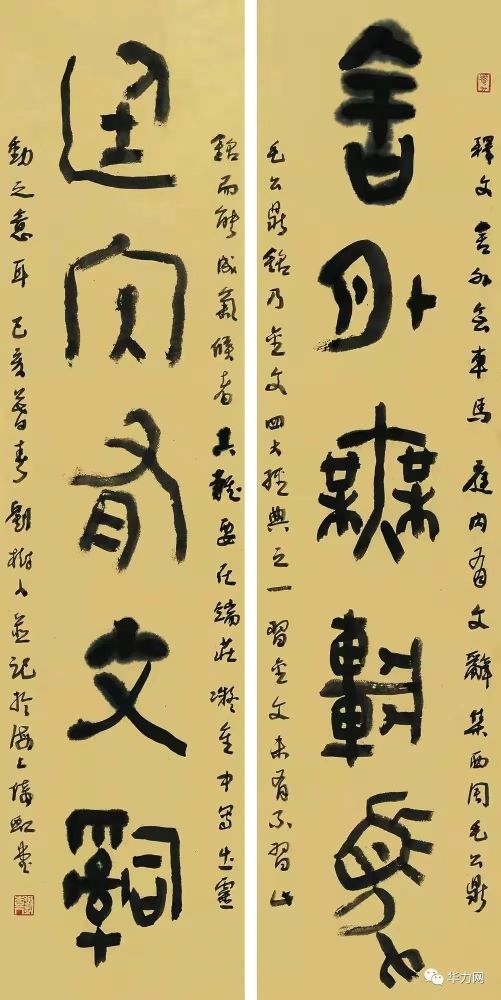 釋文 舍外無車馬 庭内有文辭 集西周毛公鼎
舍外無車馬
毛公鼎銘乃金文四大經典之一習金文未有不習此
銘而能成氣候者其難要在端莊凝重中寫出靈
廷内有文辭
動之意耳 己亥暮春 劉樹人並記於海上 堂
华力网